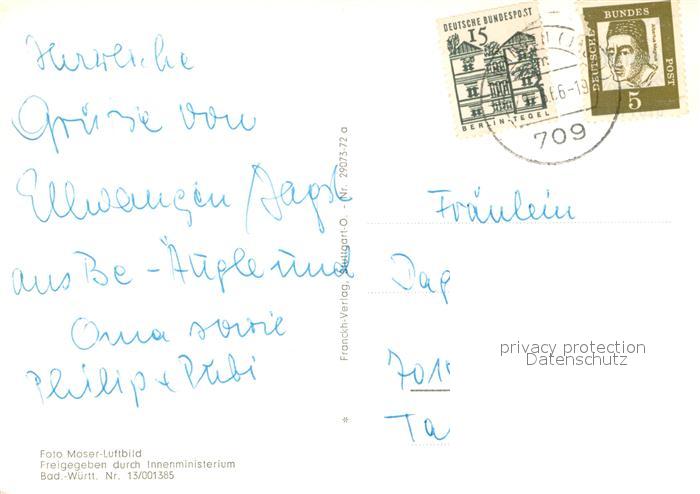 Herzliche
Grüße von
Ellwangen Jagst
aus Be - Äugle und
Oma sowie
Philip + Bubi
Foto Moser-Luftbild
Freigegeben durch Innenministerium
Bad.-Württ. Nr. 13/001385
Franckh-Verlag, Stuttgart-O. - Nr. 29073-72 a
DEUTSCHE BUNDESPOST
15
BERLIN-TEGEL
DEUTSCHE BUNDES POST
5
709
Fräulein
Dag
701
Ta
privacy protection
Datenschutz